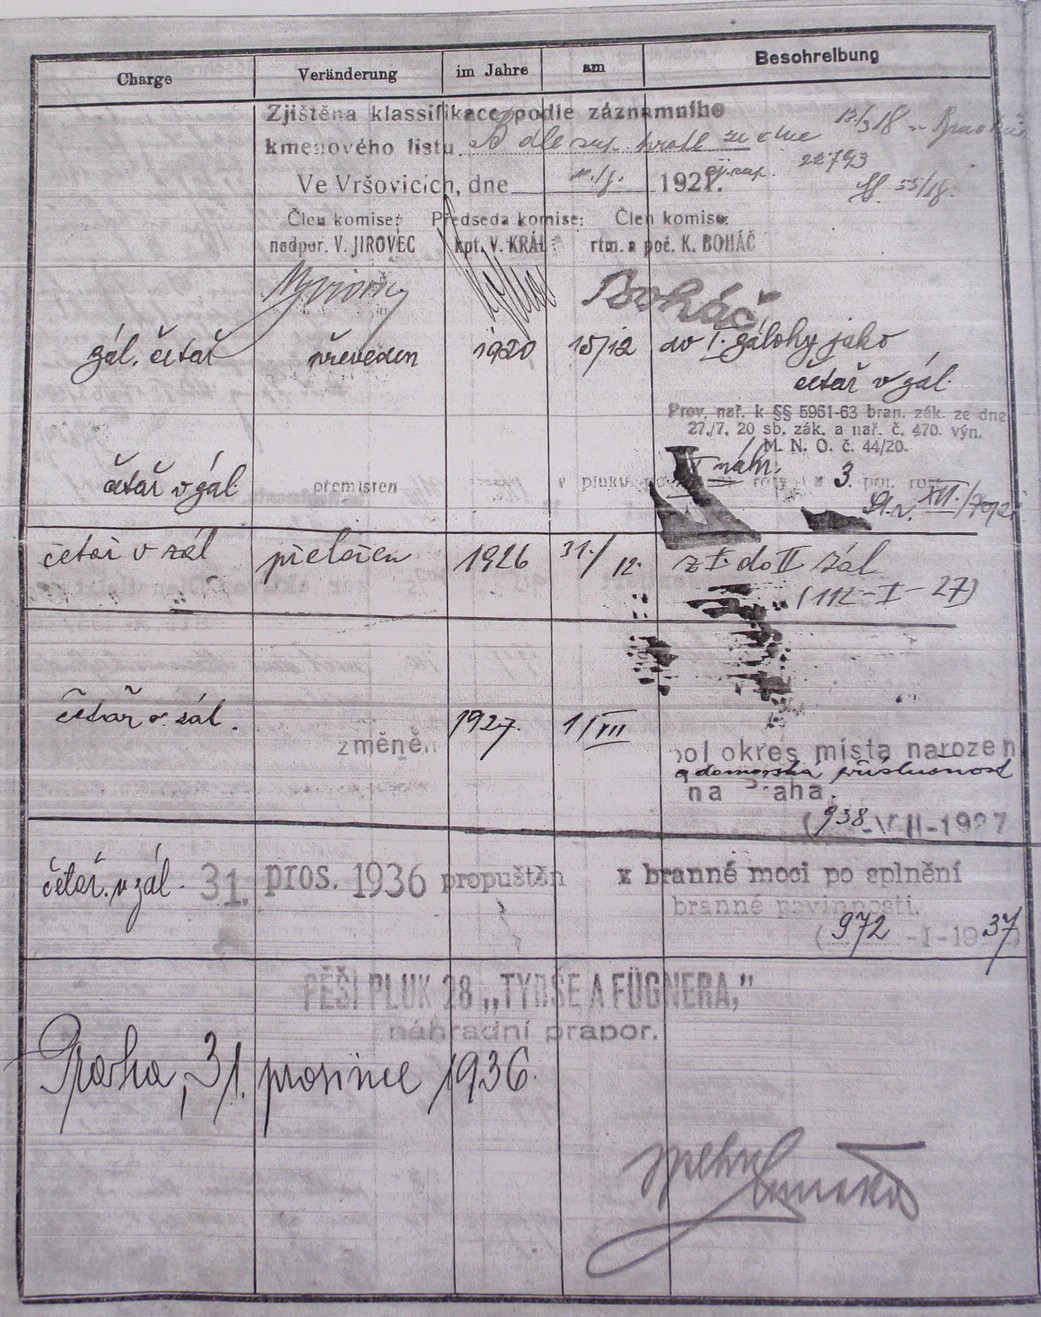 Charge Veränderung im Jahre am Beschreibung
Zjištěna klassifikace podle záznamního
kmenového listu
Ve Vršovicích, dne 1921.
22793
Člen komise: Předseda komise: Člen komise:
nadpor. V. JIROVEC kpt. V. KRÁL rtm. a poč. K. BOHÁČ
Boháč
zál. četař převeden 1920 15/12 do I. zálohy jako
četař v zál.
Prov, nař. k §§ 5961-63 bran. zák. ze dne
27./7. 20 sb. zák. a nař. č. 470. výn.
M. N. O. č. 44/20.
četař v zál přemístěn náhr. 3.
četař v zál přeložen 1926 31./12. z I. do II zál
(112-I-27)
četař v. zál. změněn 1927. 1/VII pol okres místa narozen
a domovská příslušnost
na Praha.
(938-VII-1927
četař. v zál. 31. pros. 1936 propuštěn z branné moci po splnění
branné povinnosti.
(972-I-1937)
PĚŠÍ PLUK 28 „TYRŠE A FÜGNERA,"
náhradní prapor.
Praha, 31. prosince 1936.